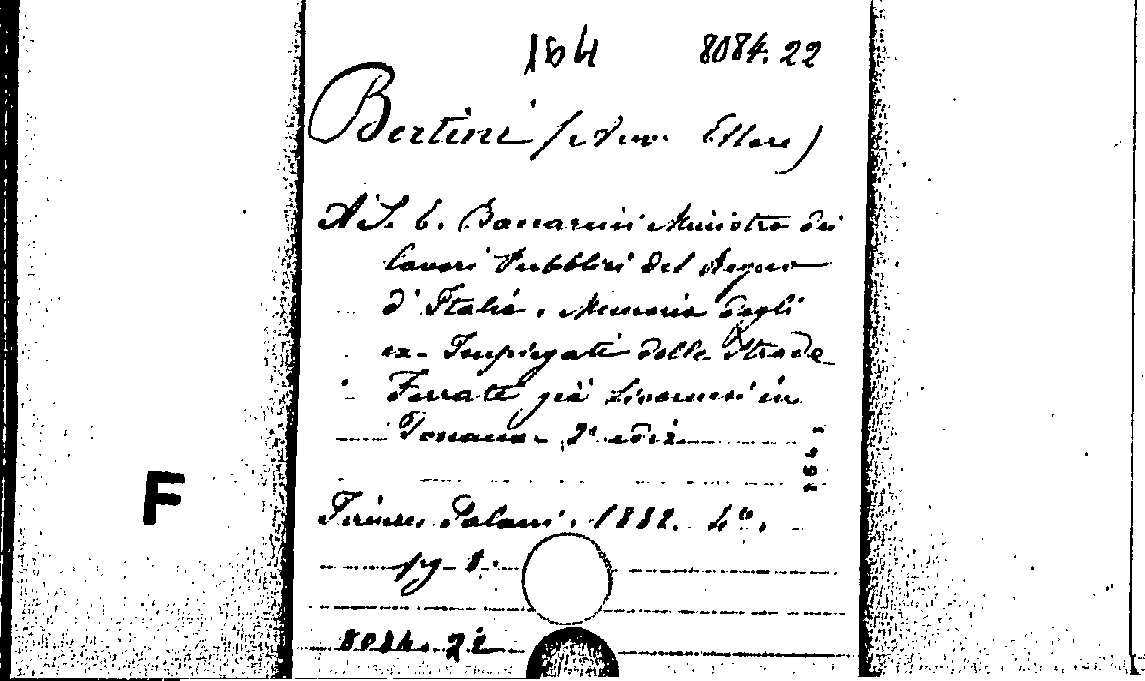 164 8084.22
Bertini (Avv. Ettore)
A S. E. Baccarini Ministro dei
lavori Pubblici del Regno
d'Italia. Memoria degli
ex-Impiegati delle Strade
Ferrate già Livornesi in
Toscana. 2ª ediz.
F
Firenze. Polani. 1882. 4º.
pg
8084.22